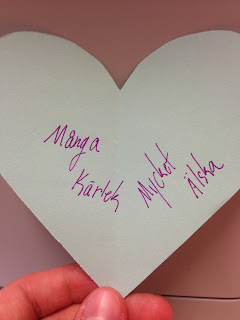 Många
Kärlek
Myckot
Älska